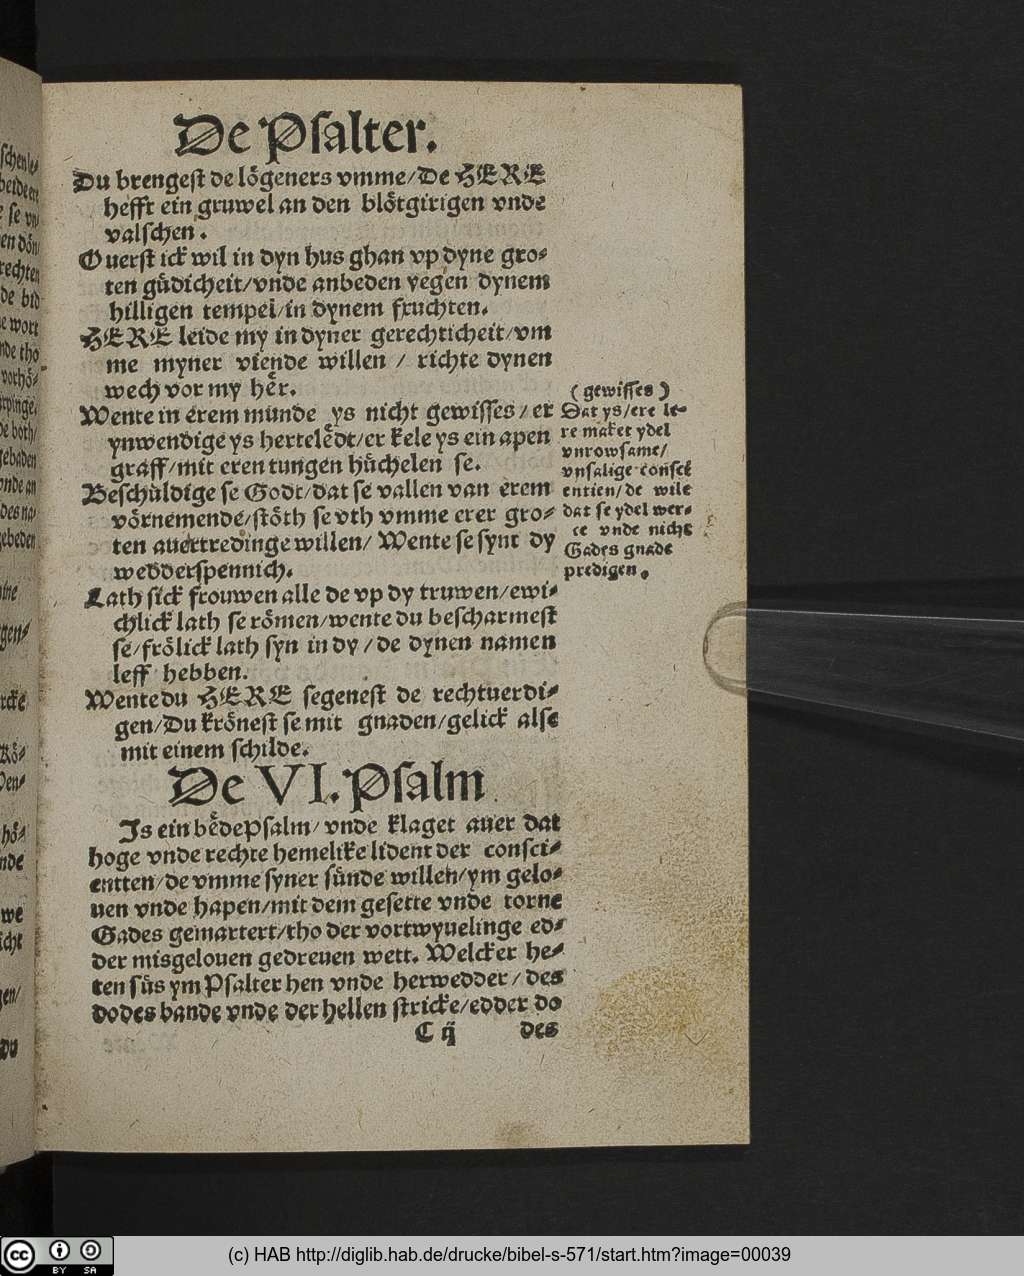 De Psalter.
Du brengest de lögeners vmme/De HERE
hefft ein gruwel an den blötgirigen vnde
valschen.
Ouerst ick wil in dyn hus ghan vp dyne gro-
ten güdicheit/vnde anbeden yegen dynem
hilligen tempel/in dynem fruchten.
HERE leide my in dyner gerechticheit/vm
me myner viende willen / richte dynen
wech vor my her.
Wente in erem munde ys nicht gewisses/er
ynwendige ys hertelëdt/er kele ys ein apen
graff/mit eren tungen hüchelen se.
Beschüldige se Godt/dat se vallen van erem
vörnemende/stöth se vth vmme erer gro-
ten auertredinge willen/ Wente se synt dy
wedderspennich.
Lath sick frouwen alle de vp dy truwen/ewi-
chlick lath se römen/wente du bescharmest
se/frölick lath syn in dy/de dynen namen
leff hebben.
Wente du HERE segenest de rechtuerdi-
gen/Du krönest se mit gnaden/gelick alse
mit einem schilde.
(gewisses)
Dat ys/ere le-
re maket ydel
vnrowsame/
vnsalige consci
entien/de wile
dat se ydel wer-
ce vnde nicht
Gades gnade
predigen.
De VI. Psalm
Is ein bëdePsalm/vnde klaget auer dat
hoge vnde rechte hemelike lident der consci-
entten/de vmme syner sünde willen/ym gelo-
uen vnde hapen/mit dem gesette vnde torne
Gades gemartert/tho der vortwyuelinge ed-
der misgelouen gedreuen wert. Welcker he-
ten süs ym Psalter hen vnde herwedder/des
dodes bande vnde der hellen stricke/edder do
C ij des
(c) HAB http://diglib.hab.de/drucke/bibel-s-571/start.htm?image=00039
cc BY SA